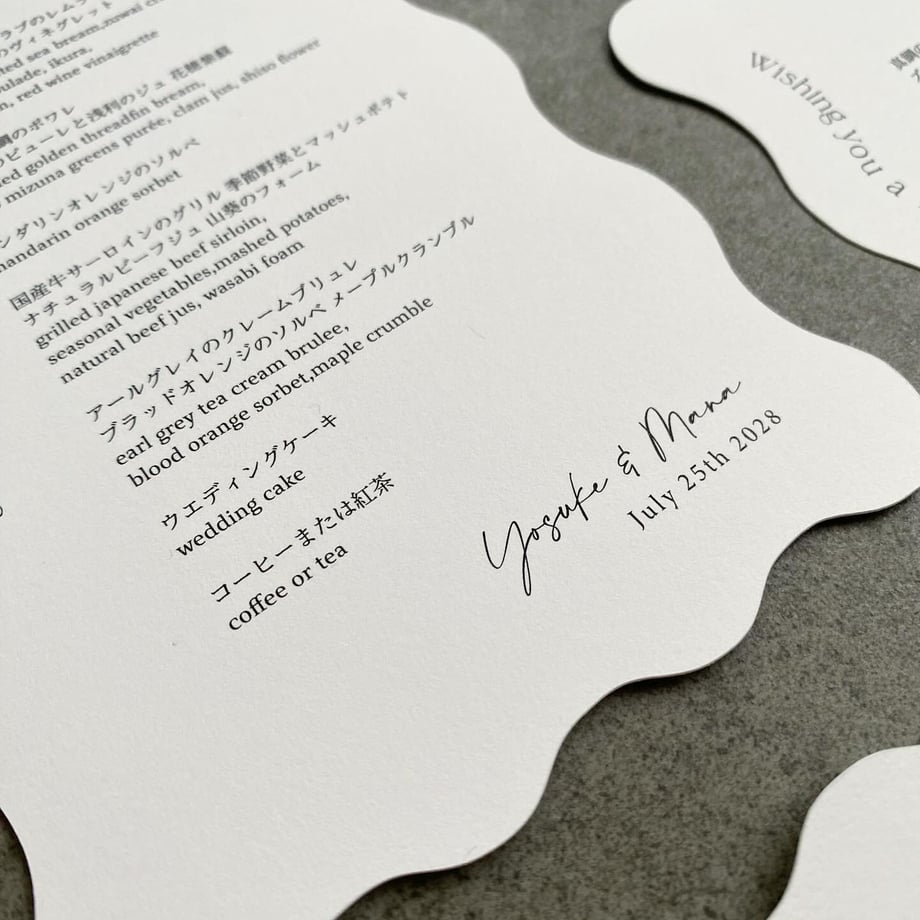 のヴィネグレット
sea bream,
ikura,
red wine vinaigrette
のポワレ
のピューレと浅利のジュ 花穂紫蘇
golden threadfin bream,
mizuna greens purée, clam jus, shiso flower
ンダリンオレンジのソルベ
mandarin orange sorbet
国産牛サーロインのグリル 季節野菜とマッシュポテト
ナチュラルビーフジュ 山葵のフォーム
grilled japanese beef sirloin,
seasonal vegetables,mashed potatoes,
natural beef jus, wasabi foam
アールグレイのクレームブリュレ
ブラッドオレンジのソルベ メープルクランブル
earl grey tea cream brulee,
blood orange sorbet,maple crumble
ウエディングケーキ
wedding cake
コーヒーまたは紅茶
coffee or tea
Yosuke & Mana
July 25th 2028
Wishing you a